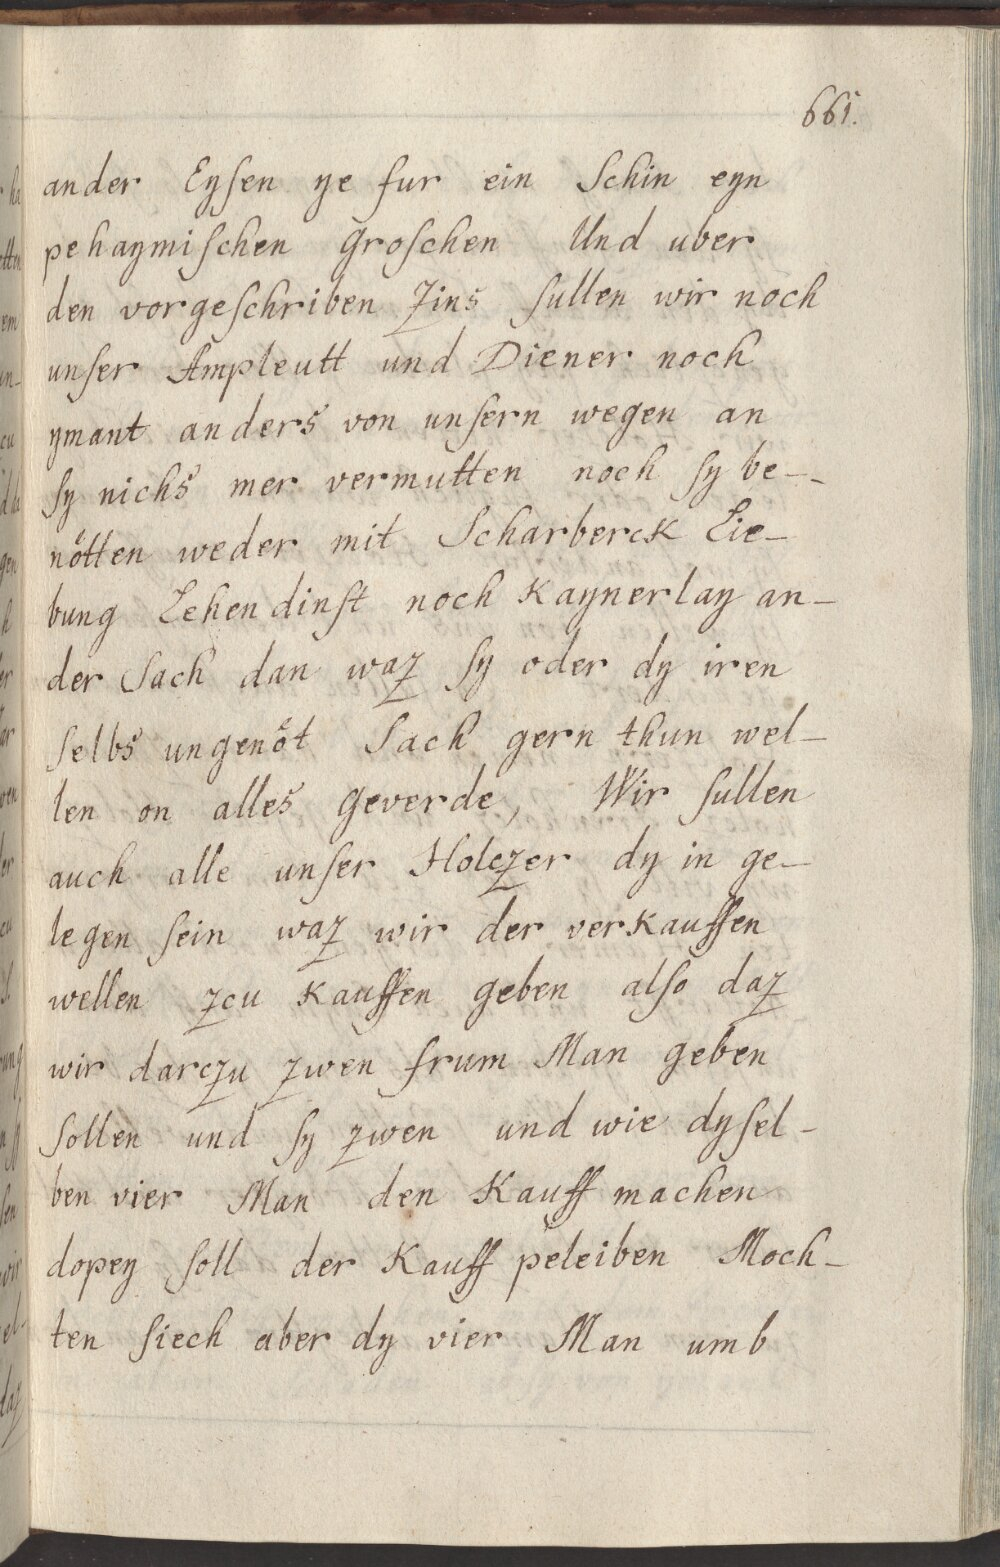 661.
ander Eysen ye fur ein Schin eyn
pehaymischen Groschen Und uber
den vorgeschriben Zins sullen wir noch
unser Ampleutt und Diener noch
ymant anders von unsern wegen an
sy nichs mer vermutten noch sy be-
nötten weder mit Scharberck Lie-
bung Lehendinst noch kaynerlay an-
der Sach dan waz sy oder dy iren
selbs ungenöt Sach gern thun wel-
len on alles geverde, Wir sullen
auch alle unser Holczer dy in ge-
legen sein waz wir der verkauffen
wellen zcu kauffen geben also daz
wir darczu zwen frum Man geben
sollen und sy zwen und wie dysel-
ben vier Man den Kauff machen
dopey soll der Kauff peleiben Moch-
ten siech aber dy vier Man umb